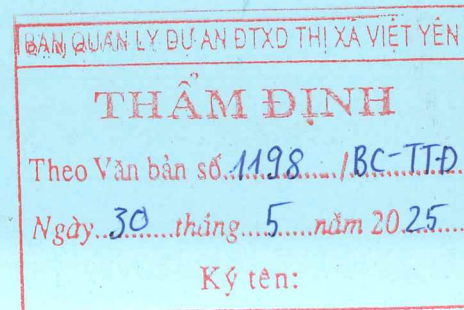 BAN QUẢN LÝ DỰ ÁN ĐTXD THỊ XÃ VIỆT YÊN
THẨM ĐỊNH
Theo Văn bản số 1198 /BC-TTĐ
Ngày 30 tháng 5 năm 2025
Ký tên: